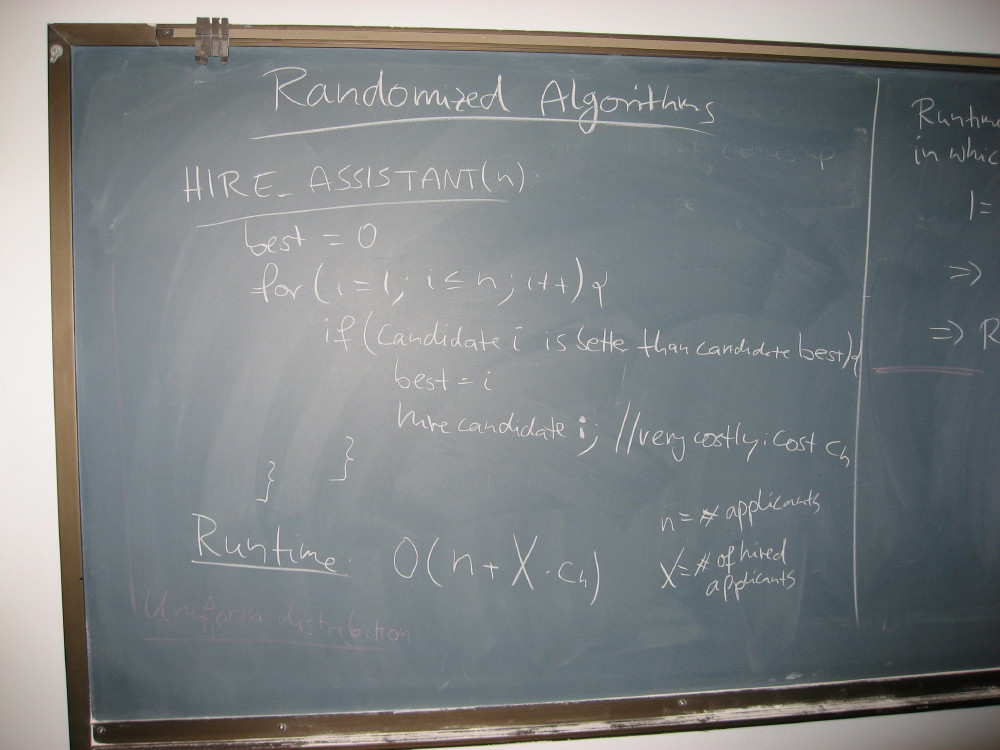 Randomized Algorithms
HIRE_ASSISTANT(n):
best = 0
for (i=1; i≤n; i++){
if (candidate i is better than candidate best){
best = i
hire candidate i; //very costly: cost cₕ
}
}
Runtime: O(n + X · cₕ)
n = # applicants
X = # of hired
applicants
Uniform distribution
Runtime
in which
1=
=>
=> R